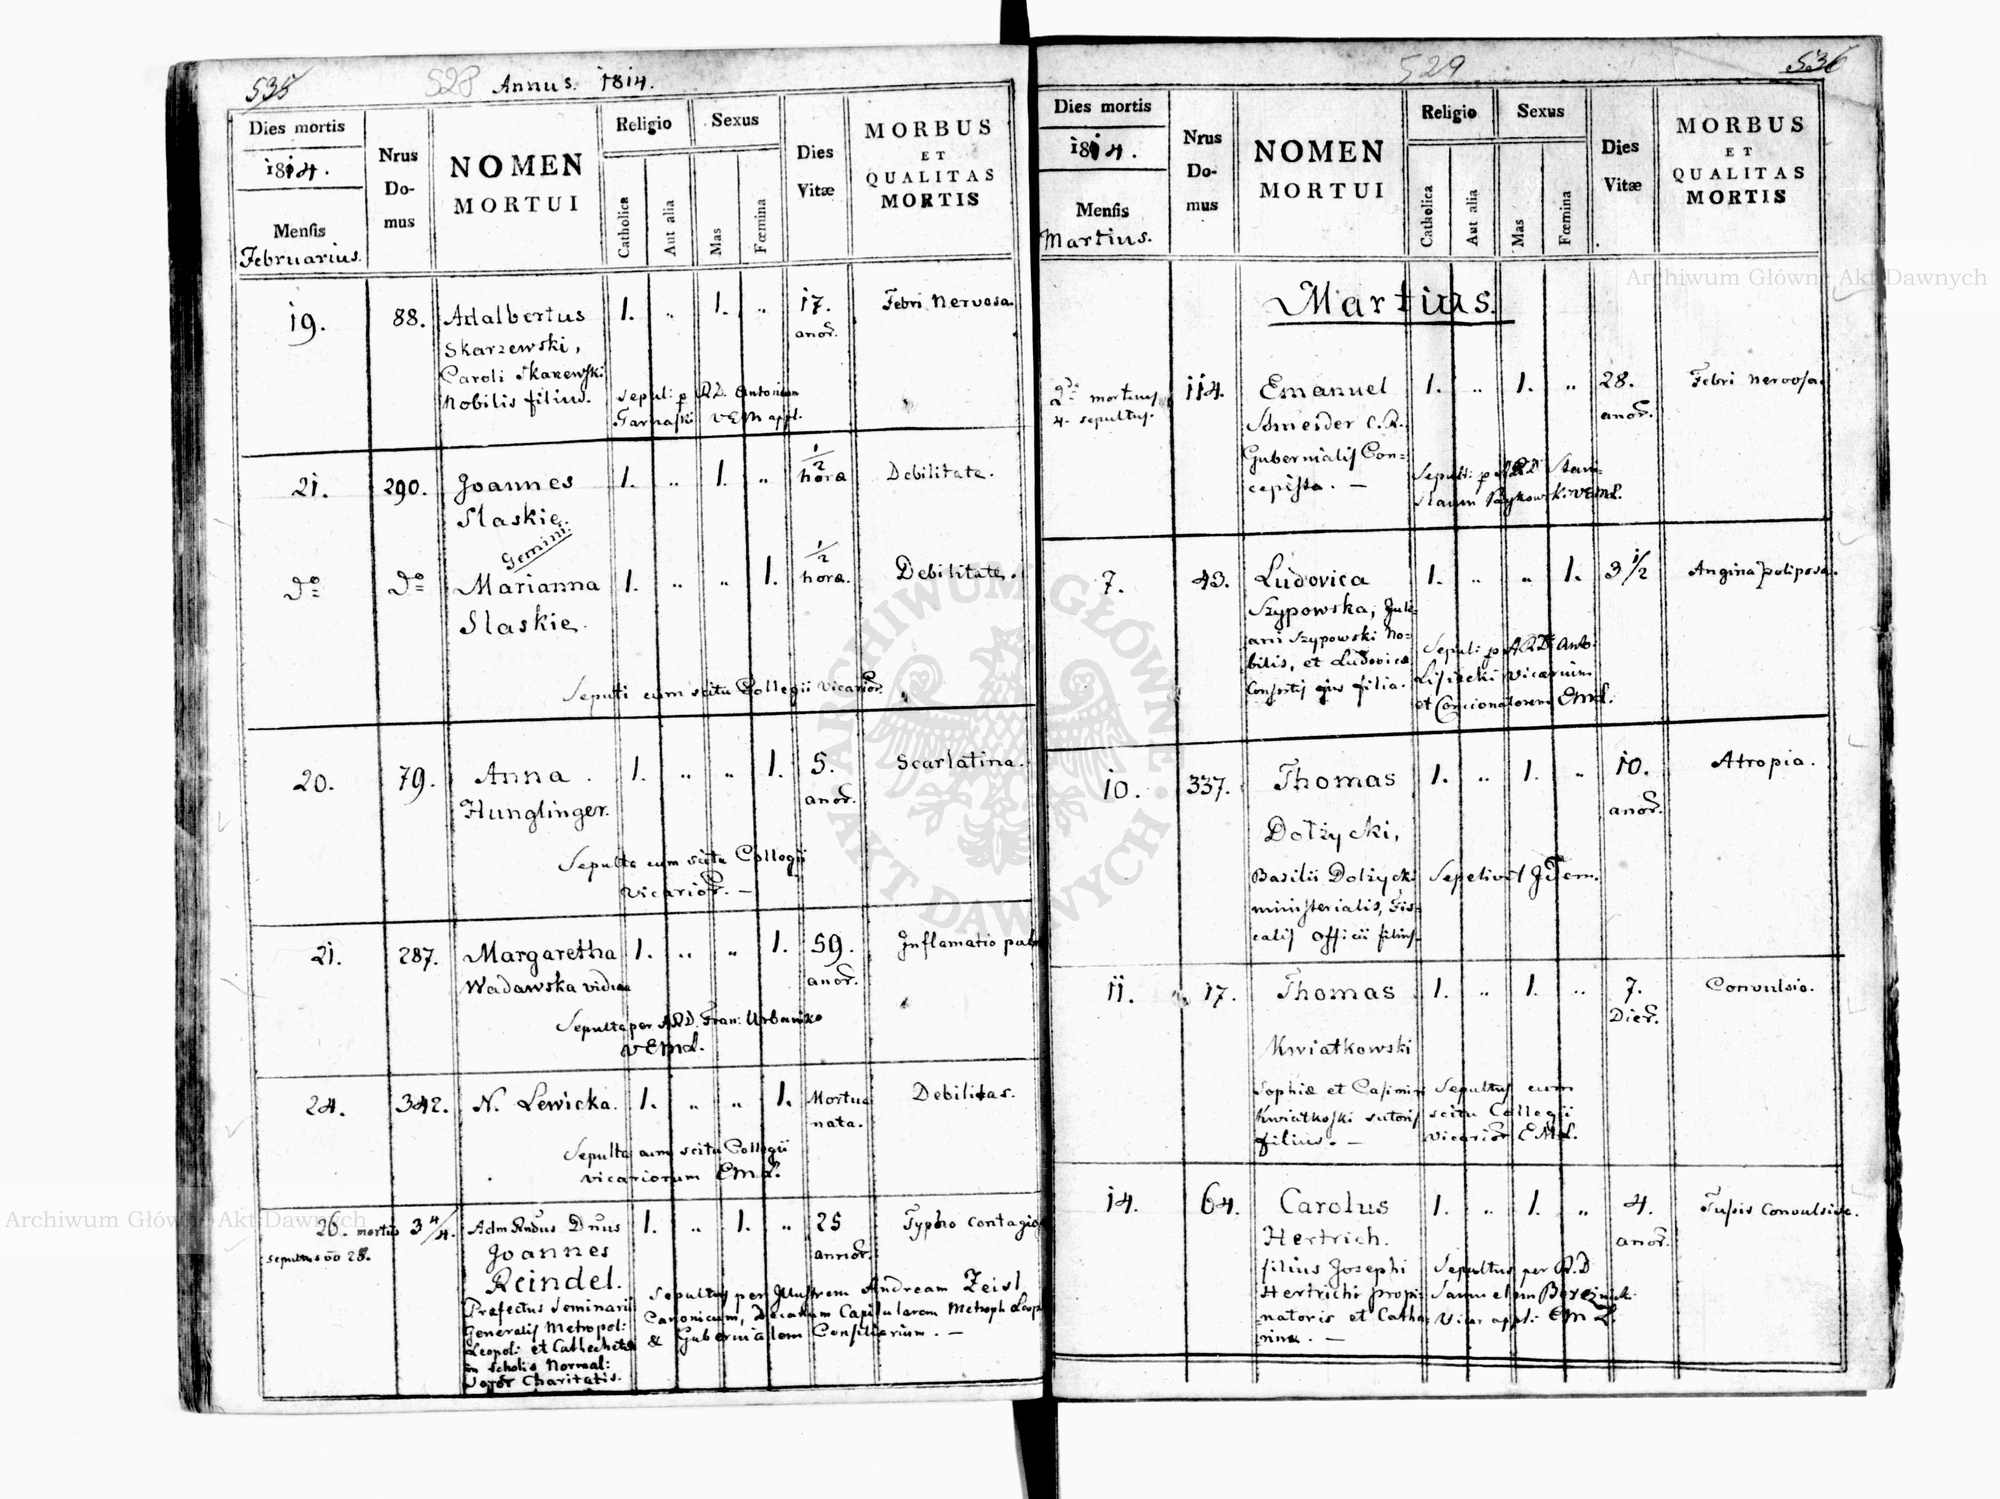 535 528 Annus. 1814.
Dies mortis
1814.
Mensis
Februarius.
Nrus
Do-
mus
NOMEN
MORTUI
Religio
Catholica
Aut alia
Sexus
Mas
Fœmina
Dies
Vitæ
MORBUS
ET
QUALITAS
MORTIS
19. 88. Adalbertus 1. „ 1. „ 17. Febri nervosa.
Skarzewski, anor.
Caroli Skarzewski
Nobilis filius. sepul: p R.D. Antonium
Tarnaski VEM appl.
21. 290. Joannes 1. „ 1. „ 1/2 hora Debilitate.
Slaskie.
Gemini
do do Marianna 1. „ „ 1. 1/2 hora. Debilitate.
Slaskie.
Sepulti cum scitu Collegii Vicarior.
20. 79. Anna 1. „ „ 1. 5. Scarlatina.
Hunglinger. anor.
Sepulta cum scitu Collegii
vicarior. —
21. 287. Margaretha 1. „ „ 1. 59. Inflamatio pul
Wadawska vidua anor.
Sepulta per A.R.D. Fran: Urbanik
VEML.
24. 342. N. Lewicka. 1. „ „ 1. Mortua Debilitas.
nata.
Sepulta cum scitu Collegii
vicariorum EML.
26. mortus 3 4/4. Adm Rndus Dnus 1. „ 1. „ 25 Typho contagio
sepultus 28. Joannes annor.
Reindel.
Prefectus Seminarii Sepultus per Illustrem Andream Zeisl
Generalis Metropol: Canonicum, Decanum Capitularem Metroph Leop
Leopol: et Cathecheta & Gubernialem Consiliarium. —
in scholis Normal:
Soror Charitatis.
529 536
Dies mortis
1814.
Mensis
Martius.
Nrus
Do-
mus
NOMEN
MORTUI
Religio
Catholica
Aut alia
Sexus
Mas
Fœmina
Dies
Vitæ
MORBUS
ET
QUALITAS
MORTIS
Martius.
2da mortuus 114. Emanuel 1. „ 1. „ 28. Febri nervosa.
4. sepultus. Schneider C.R. anor.
Gubernialis Con=
cepista. — Sepult: p A.R.D. Stani-
slaum VEML.
7. 43. Ludovica 1. „ „ 1. 3 1/2 Angina poliposa.
Szypowska, Juli-
ani Szypowski No=
bilis, et Ludovica Sepul: p A.R.D. Anto:
Consortis ejus filia. Lisiecki vicarium
et Concionatorem EML.
10. 337. Thomas 1. „ 1. „ 10. Atropia.
Dołżycki, anor.
Basilii Dolzycki Sepelivit Idem.
ministerialis, Fis-
calis officii filius.
11. 17. Thomas 1. „ 1. „ 7. Convulsio.
Kwiatkowski Dier.
Sophiæ et Casimiri Sepultus cum
Kwiatkoski sutoris scitu Collegii
filius. — Vicarior EML.
14. 64. Carolus 1. „ 1. „ 4. Tusis Convulsiva.
Hertrich. anor.
filius Josephi Sepultus per R.D
Hertrichi propi- Samuelem Bereznick
natoris et Catha- Vicar appl: EML.
rinæ. —
Archiwum Główne Akt Dawnych
Archiwum Główne Akt Dawnych
ARCHIWUM GŁÓWNE AKT DAWNYCH